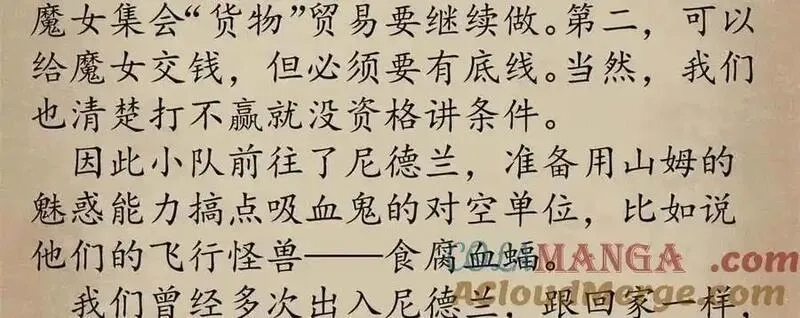 魔女集会“货物”贸易要继续做。第二，可以
给魔女交钱，但必须要有底线。当然，我们
也清楚打不赢就没资格讲条件。
因此小队前往了尼德兰，准备用山姆的
魅惑能力搞点吸血鬼的对空单位，比如说
他们的飞行怪兽——食腐血蝠。
COLAMANGA.com
我们曾经多次出入尼德兰，跟回家一样，
ACloudMerge.com